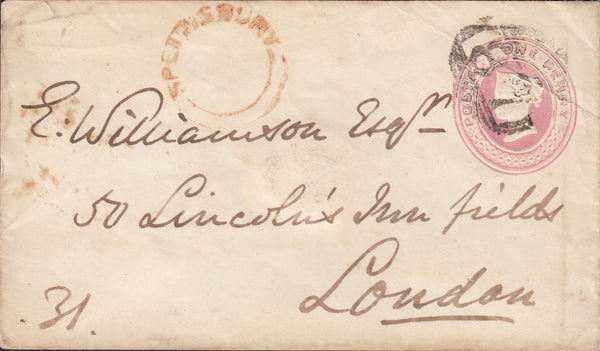 SPETTISBURY
POSTAGE ONE PENNY
E. Williamson Esqre
50 Lincoln's Inn fields
London
31.